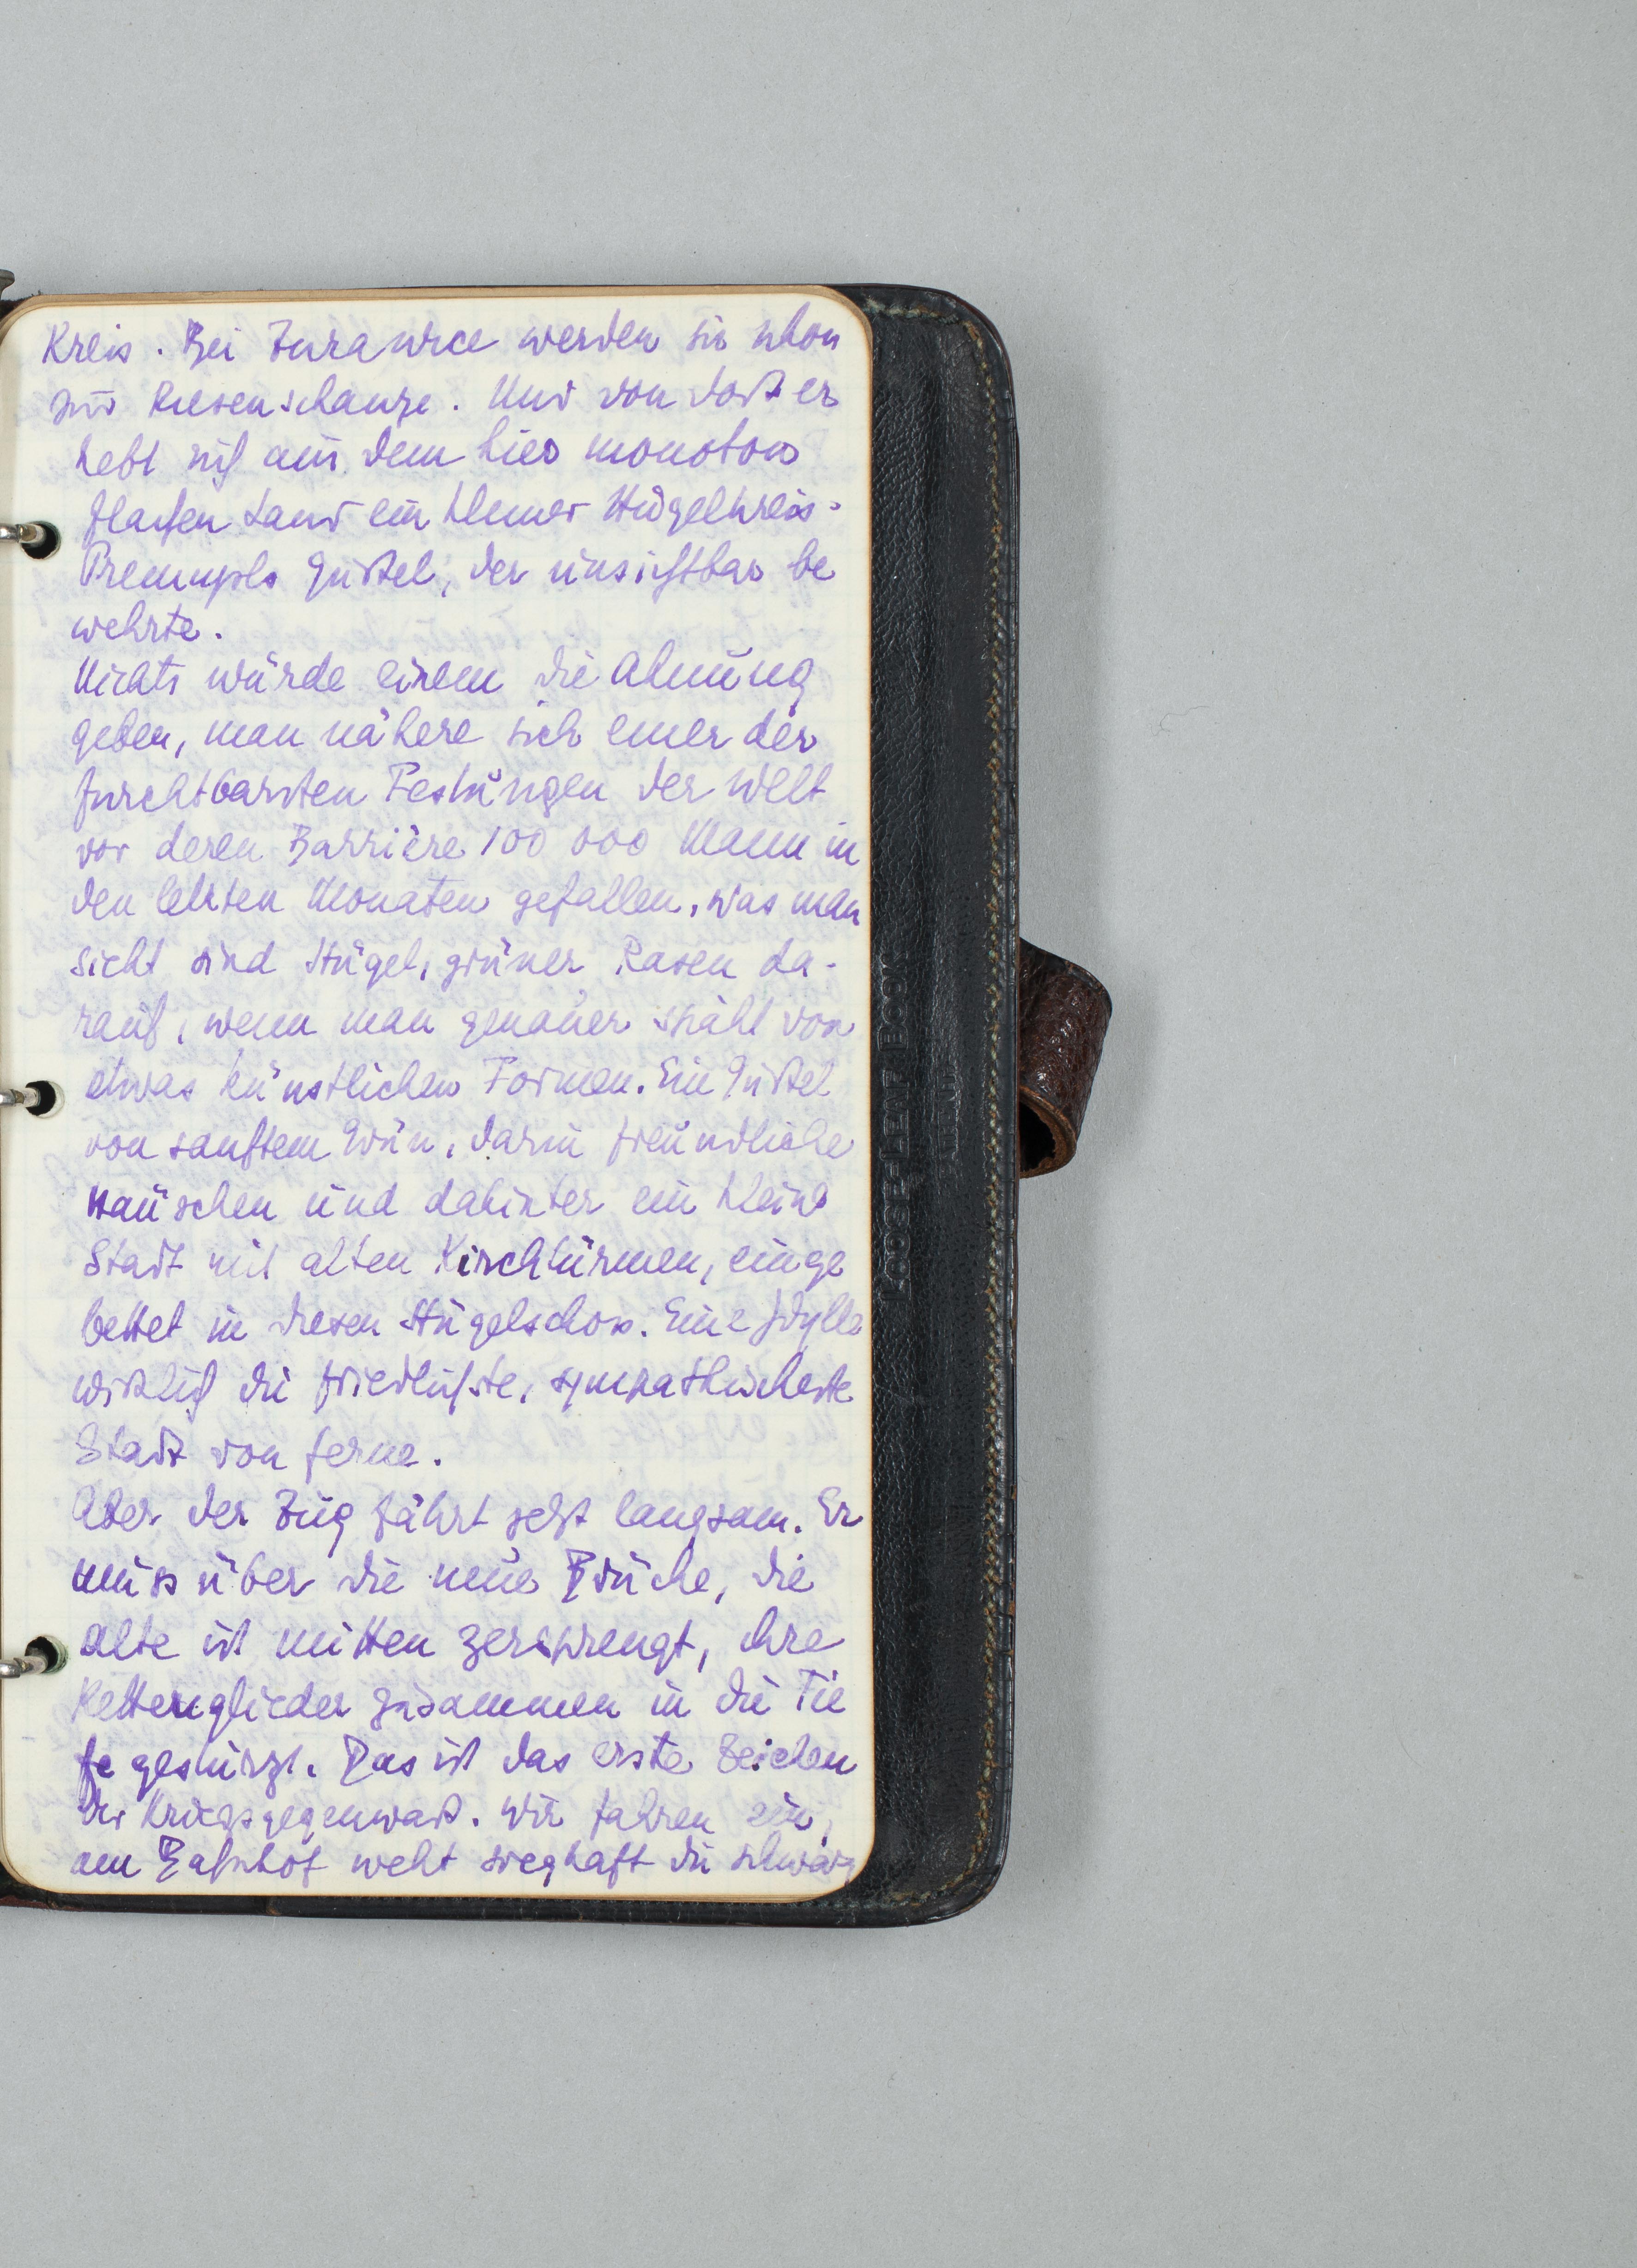 Kreis. Bei Zurawice werden sie schon
zur Riesenschanze. Und von dort er
hebt sich aus dem hier monoton
flachen Land ein kleiner Hügelkreis:
Przemysls Gürtel, der unsichtbar be
wehrte.
Nichts würde einem die Ahnung
geben, man nähere sich einer der
furchtbarsten Festungen der Welt
vor deren Barrière 100 000 Mann in
den letzten Monaten gefallen, was man
sieht sind Hügel, grüner Rasen da-
rauf, wenn man genauer späht von
etwas künstlichen Formen. Ein Gürtel
von sanftem Grün, darin freundliche
Häuschen und dahinter ein kleine
Stadt mit alten Kirchtürmen, einge
bettet in diesen Hügelschoss. Eine Idylle
wirklich die friedlichste, sympathischeste
Stadt von ferne.
Aber der Zug fährt jetzt langsam. Er
muss über die neue Brücke, die
alte ist mitten zersprengt, ihre
Kettenglieder zusammen in die Tie
fe gestürzt. Das ist das erste Zeichen
der Kriegsgegenwart. Wir fahren ein,
am Bahnhof weht sieghaft die schwarz
LOOSE-LEAF BOOK